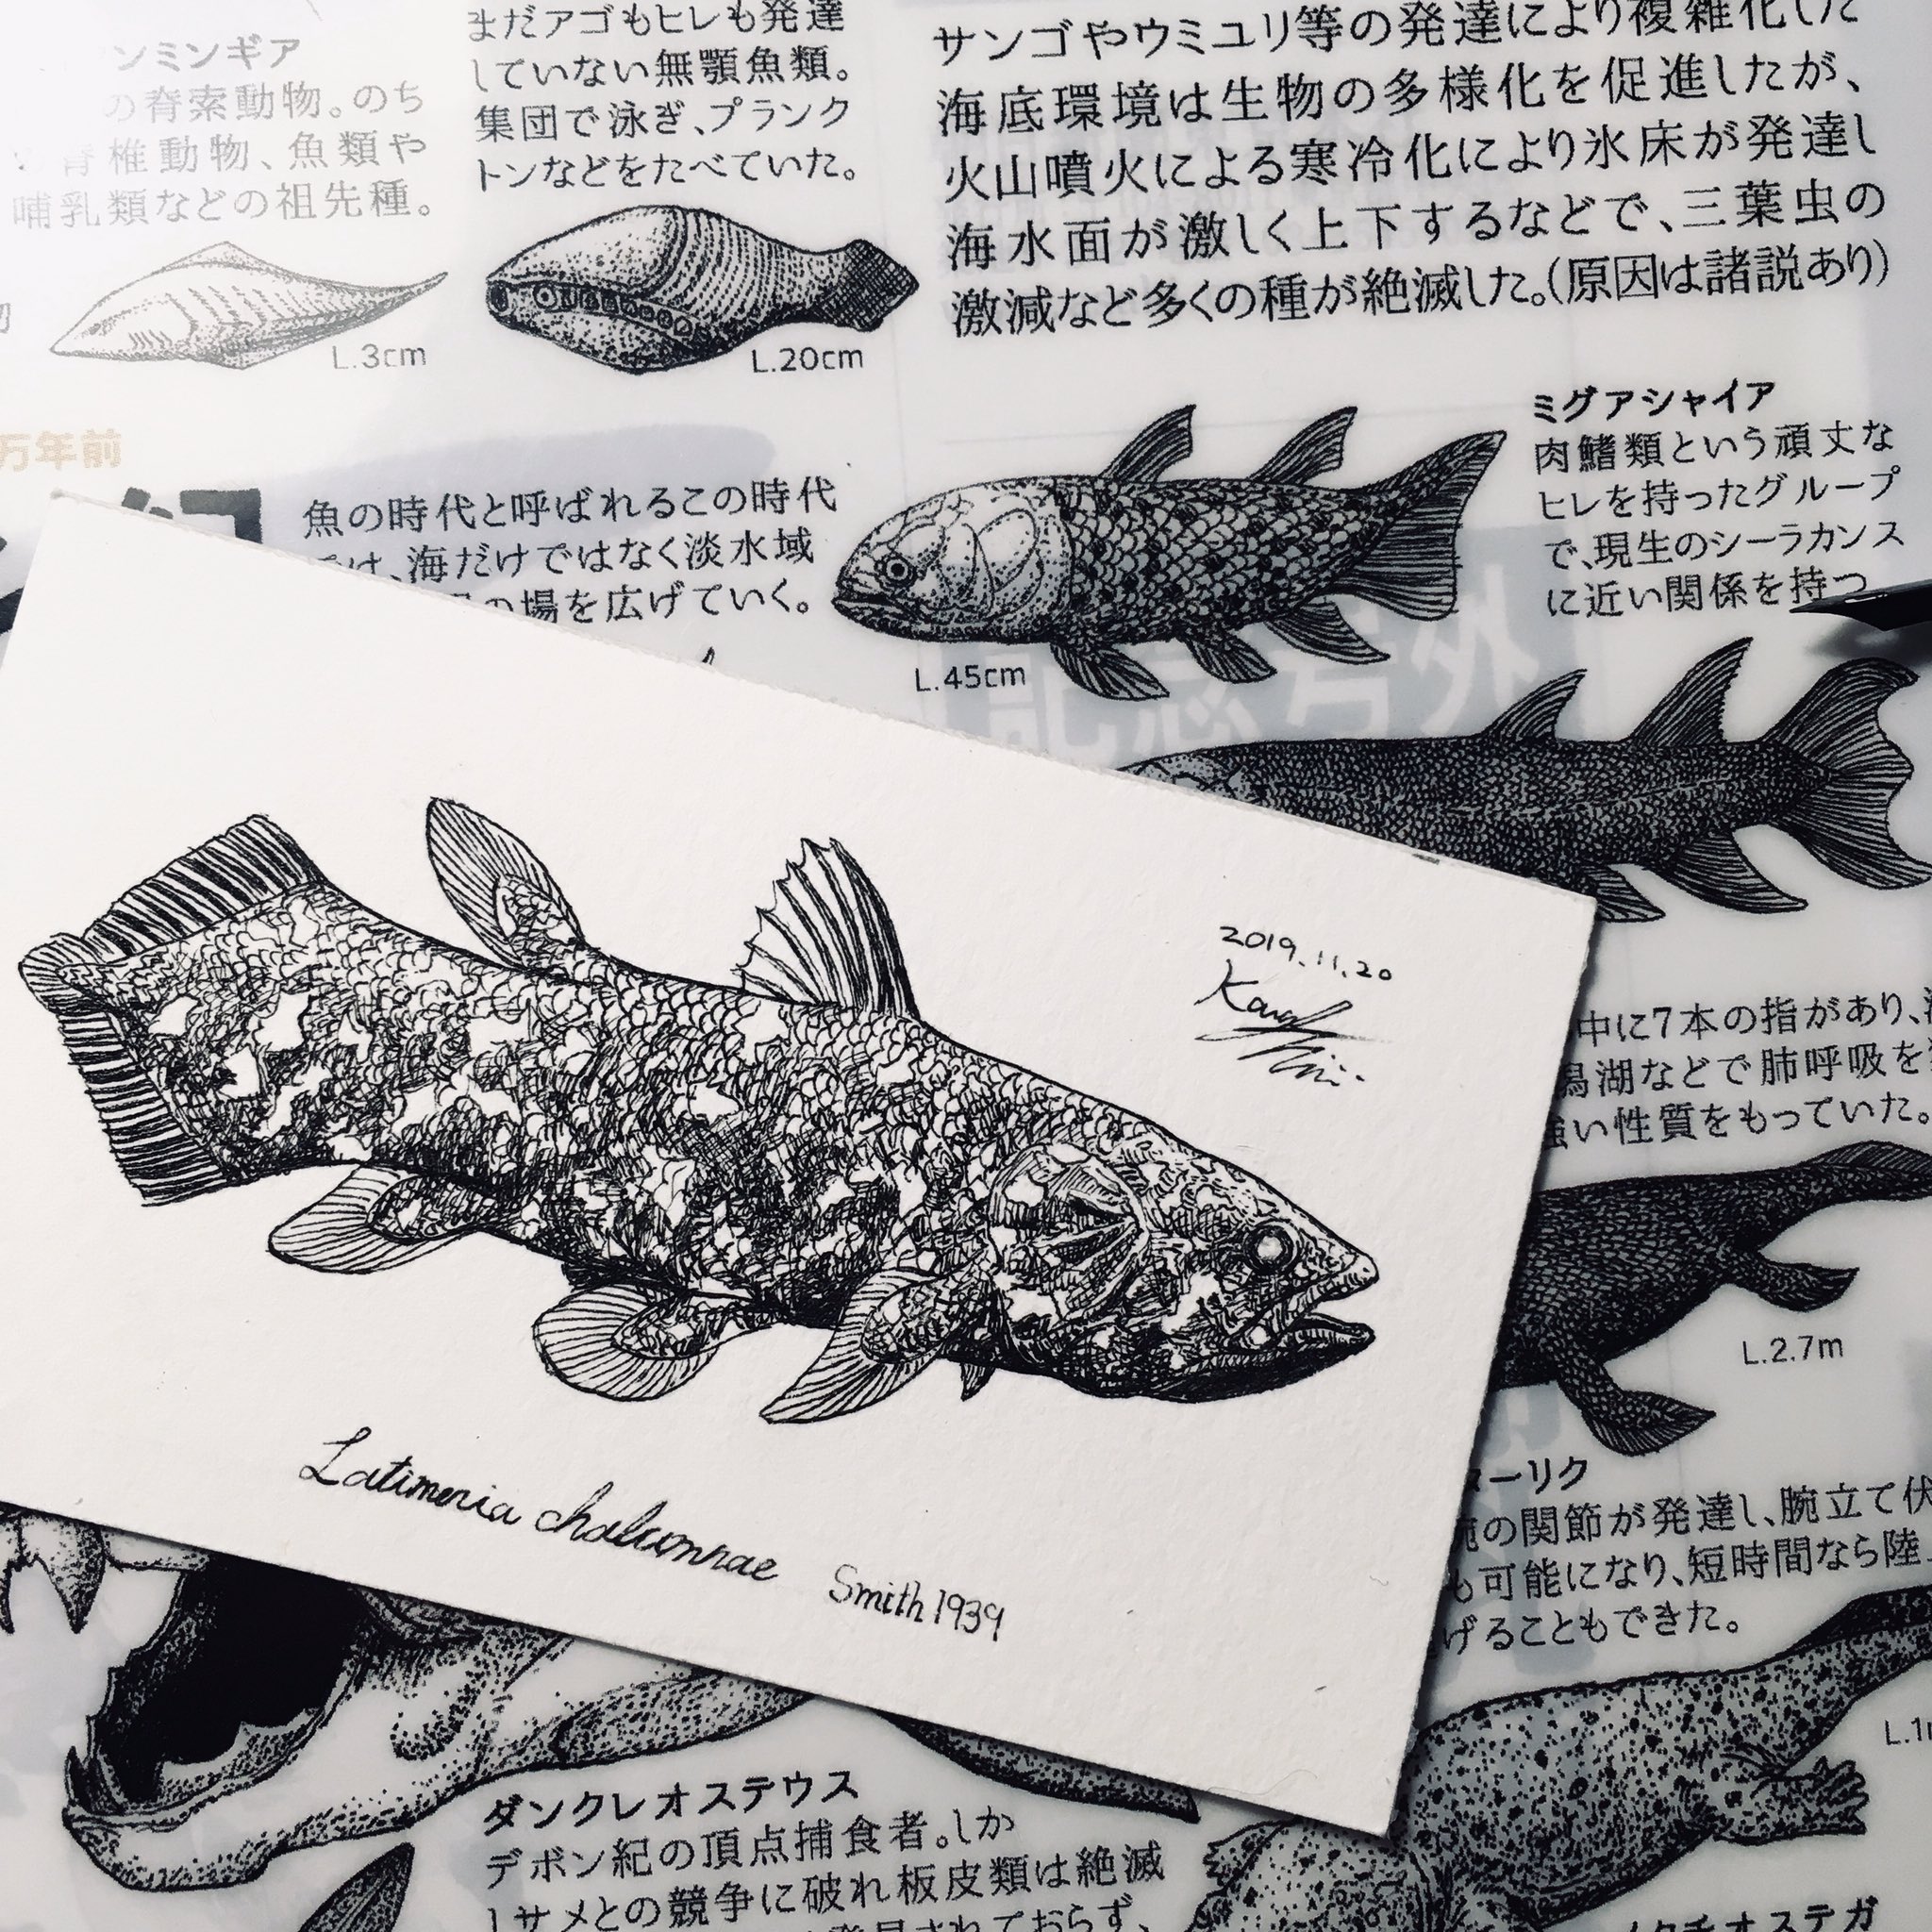 ンミンギア
の脊索動物。のち
脊椎動物、魚類や
哺乳類などの祖先種。
L.3cm
まだアゴもヒレも発達
していない無顎魚類。
集団で泳ぎ、プランク
トンなどをたべていた。
L.20cm
サンゴやウミユリ等の発達により複雑化した
海底環境は生物の多様化を促進したが、
火山噴火による寒冷化により氷床が発達し
海水面が激しく上下するなどで、三葉虫の
激減など多くの種が絶滅した。(原因は諸説あり)
万年前
魚の時代と呼ばれるこの時代
は、海だけではなく淡水域
の場を広げていく。
L.45cm
ミグアシャイア
肉鰭類という頑丈な
ヒレを持ったグループ
で、現生のシーラカンス
に近い関係を持つ
記念号外
2019.11.20
Latimeria chalumnae Smith 1939
中に7本の指があり、
湖などで肺呼吸を
強い性質をもっていた。
L.2.7m
ーリク
の関節が発達し、腕立て伏
も可能になり、短時間なら陸
げることもできた。
ダンクレオステウス
デボン紀の頂点捕食者。しか
しサメとの競争に破れ板皮類は絶滅